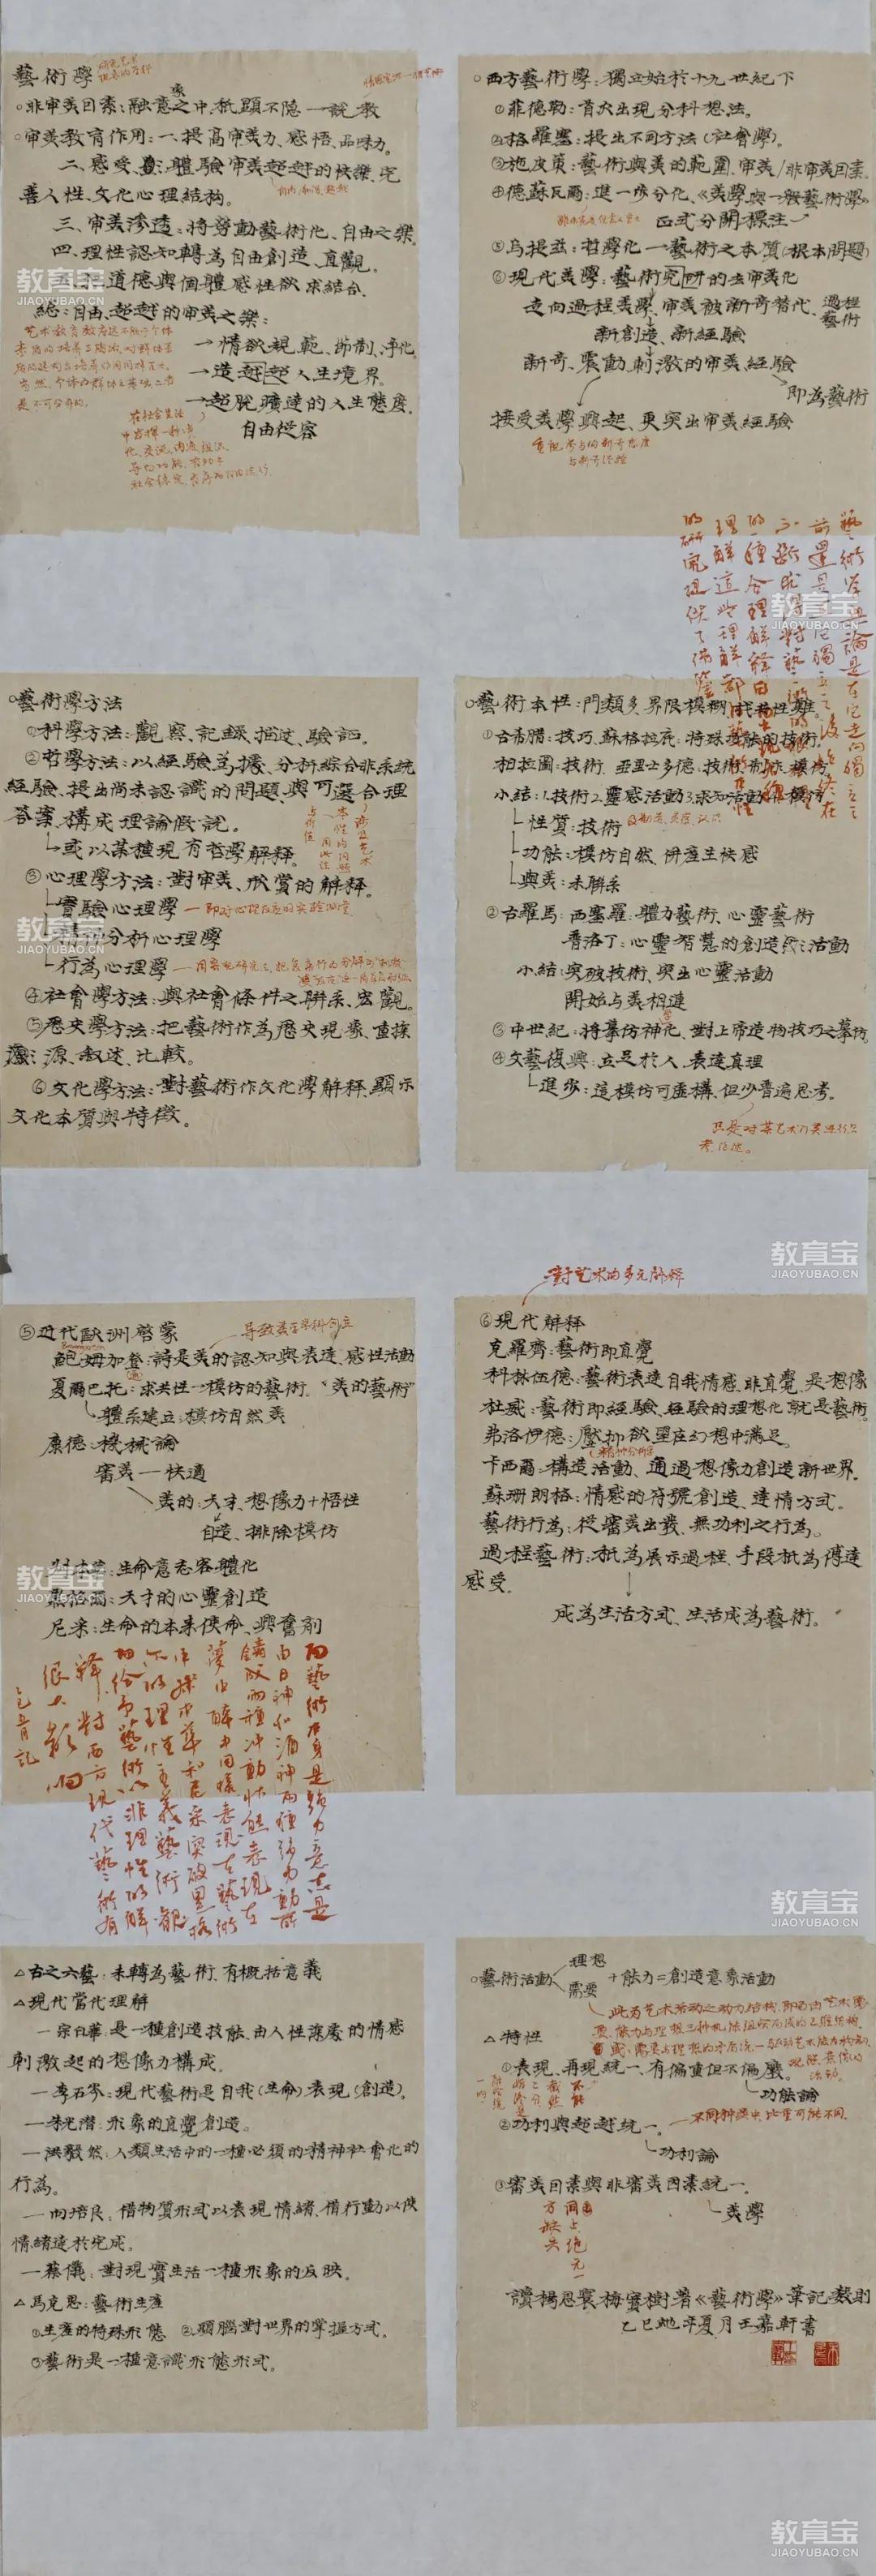 藝術學
○非审美因素：融意之中，秖顯不隐一説教
○审美教育作用：一、提高审美力、感悟、品味力。
二、感受、體驗审美超越的快樂、完
善人性、文化心理結構。
三、审美渗透：將勞動藝術化、自由之樂。
四、理性認知轉為自由創造、直觀。
五、把道德與個體感性欲求結合。
總：自由、超越的审美之樂：
→情欲規範、節制、净化。
→造越超人生境界。
→超脱曠達的人生態度。
自由從容
○西方藝術學：獨立始於十九世紀下
①菲德勒：首次出現分科想法。
②格羅塞：提出不同方法（社會學）。
③施皮策：藝術與美的範圍、审美/非审美因素。
④德蘇瓦爾：進一步分化、《美學與一般藝術學》
正式分開標注
⑤烏提兹：哲學化一藝術之本質（根本問題）
⑥現代美學：藝術究研的去审美化
走向過程美學、审美被新奇替代、過程藝術
新創造、新經驗
新奇、震動、刺激的审美經驗
即為藝術
接受美學興起、更突出审美經驗
重視参与的新奇態度
与新奇經驗
○藝術學方法
①科學方法：觀察、記錄、描述、驗証。
②哲學方法：以經驗為據、分析綜合非系統
經驗、提出尚未認識的問題、與可選合理
答案、構成理論假説。
或以某種現有哲學解釋。
③心理學方法：對审美、欣賞的解釋。
實驗心理學 一即对心理反應的实验測量
精神分析心理學
行為心理學
④社會學方法：與社會條件之聯系、宏觀。
⑤歷史學方法：把藝術作為歷史現象、直探
源、叙述、比較。
⑥文化學方法：對藝術作文化學解釋、顯示
文化本質與特徵。
○藝術本性：門類多、界限模糊、找共性難。
①古希腊：技巧、蘇格拉底：特殊技能的技術。
柏拉圖：技術、亞里士多德：技術、制作、模仿
小結：1.技術 2.靈感活動 3.求知活動 模仿
性質：技術
功能：模仿自然、併產生快感
與美：未聯系
②古羅馬：西塞羅：體力藝術、心靈藝術
普洛丁：心靈智慧的創造活動
小結：突破技術、突出心靈活動
開始与美相連
③中世紀：將摹仿神化、對上帝造物技巧之摹仿。
④文藝復興：立足於人、表達真理
進步：這模仿可虛構、但少普遍思考。
只是对某艺术门类進行思
考、論述。
⑤近代歐洲啓蒙
导致美学学科創立
鮑姆加登：詩是美的認知與表達、感性活動
夏爾巴托：求共性一模仿的藝術。“美的藝術”
體系建立：模仿自然美
康德：機械論
審美一快適
美的：天才、想像力+悟性
自造、排除模仿
叔本華：生命意志客體化
黑格爾：天才的心靈創造
尼采：生命的本來使命、興奮剂
而藝術本身是强力意志是
由日神和酒神两種强力動所
鑄成两種冲動状態表現在
夢与醉中同樣表現在藝術
中叔本華和尼采突破黑格
尔的理性主義藝術觀
而給予藝術以非理性的解
釋對西方現代藝術有
很大影响
乙巳五月記
對艺术的多元解釋
⑥現代解释
克羅齊：藝術即直覺
科林伍德：藝術表達自我情感、非直覺、是想像
杜威：藝術即經驗、經驗的理想化就是藝術。
弗洛伊德：壓抑欲望在幻想中滿足。
卡西爾：構造活動、通過想像力創造新世界。
蘇珊朗格：情感的符號創造、達情方式。
藝術行為：從審美出發、無功利之行為。
過程藝術：秖為展示過程、手段秖為傳達
感受。
成為生活方式、生活成為藝術。
△古之六藝：未轉為藝術、有概括意義
△現代當代理解
一宗白華：是一種創造技能、由人性深處的情感
刺激起的想像力構成。
一李石岑：現代藝術是自我（生命）表現（創造）。
一朱光潜：形象的直覺創造。
一洪毅然：人類生活中的一種必須的精神社會化的
行為。
一向培良：借物質形式以表現情緒、借行動以使
情緒達於完成。
一蔡儀：對現實生活一種形象的反映。
△馬克思：藝術生產
①生產的特殊形態 ②頭腦對世界的掌握方式。
③藝術是一種意識形態形式。
○藝術活動 理想 需要 +能力=創造意象活動
△特性
①表現、再現統一、有偏重但不偏廢。
功能論
②功利與超越統一。一不同种类中、比重可能不同。
功利論
③審美因素與非審美因素統一。
美學
讀楊恩寰梅寶樹著《藝術學》筆記数則
乙巳蛇年夏月王嘉軒書
教育宝
JIAOYUBAO.CN